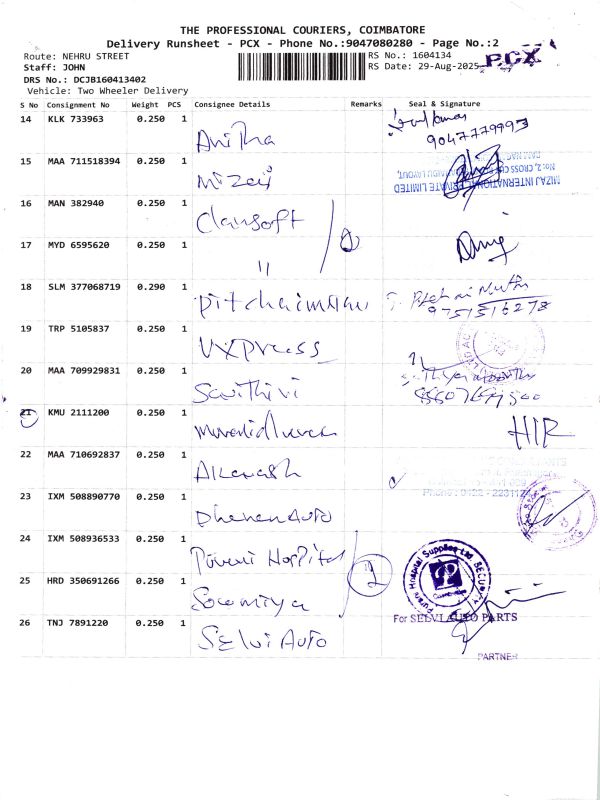 THE PROFESSIONAL COURIERS, COIMBATORE
Delivery Runsheet - PCX - Phone No.:9047080280 - Page No.:2
Route: NEHRU STREET
RS No.: 1604134
PCX
Staff: JOHN
RS Date: 29-Aug-2025
DRS No.: DCJB160413402
Vehicle: Two Wheeler Delivery
S No Consignment No Weight PCS Consignee Details Remarks Seal & Signature
14 KLK 733963 0.250 1 Anitha
9047779993
15 MAA 711518394 0.250 1 Mizaj
MIZAJ INTERNATIONAL PRIVATE LIMITED
16 MAN 382940 0.250 1 Clansoft
17 MYD 6595620 0.250 1 "
18 SLM 377068719 0.290 1 Pitchaimuthu
9751516278
19 TRP 5105837 0.250 1 UXPress
20 MAA 709929831 0.250 1 Savithiri
21 KMU 2111200 0.250 1
HIR
22 MAA 710692837 0.250 1 Akavash
23 IXM 508890770 0.250 1 Dhenen Auto
24 IXM 508936533 0.250 1 Purani Hospital
2
Purani Hospital Supplies Ltd SECURITY
25 HRD 350691266 0.250 1 Soumiya
26 TNJ 7891220 0.250 1 Selvi Auto
For SELVI AUTO PARTS
PARTNER